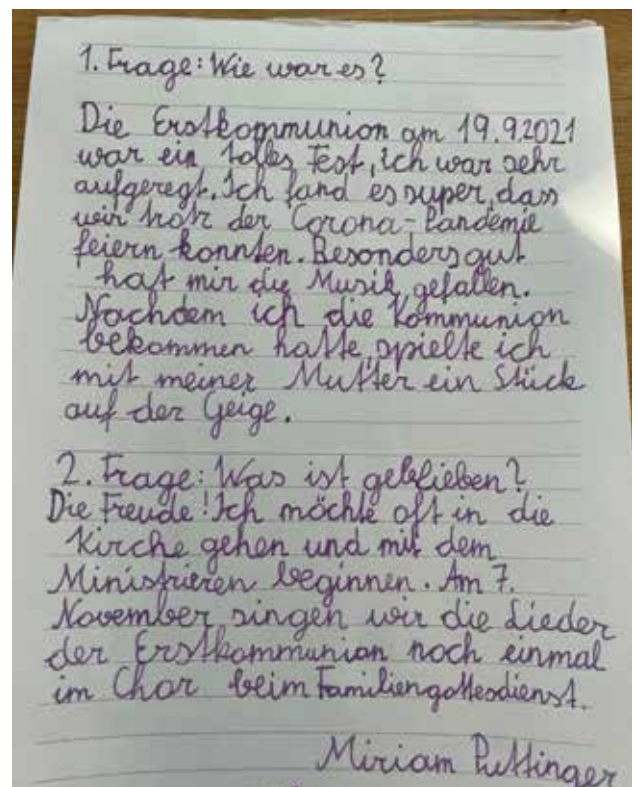 1. Frage: Wie war es?
Die Erstkommunion am 19.9.2021
war ein tolles Fest, ich war sehr
aufgeregt. Ich fand es super, dass
wir trotz der Corona-Pandemie
feiern konnten. Besonders gut
hat mir die Musik gefallen.
Nachdem ich die Kommunion
bekommen hatte, spielte ich
mit meiner Mutter ein Stück
auf der Geige.
2. Frage: Was ist geblieben?
Die Freude! Ich möchte oft in die
Kirche gehen und mit dem
Ministrieren beginnen. Am 7.
November singen wir die Lieder
der Erstkommunion noch einmal
im Chor beim Familiengottesdienst.
Miriam Puttinger